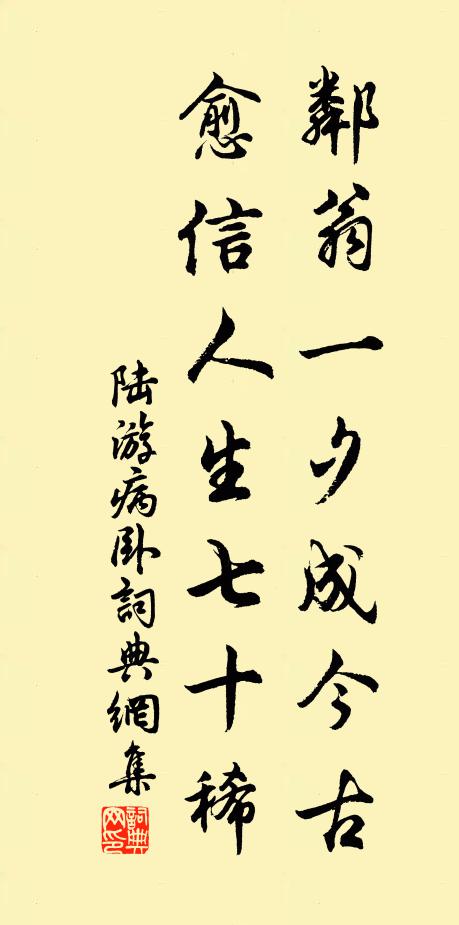 鄰翁一夕成今古
愈信人生七十稀
陆游病卧詞典網集
詞典网印